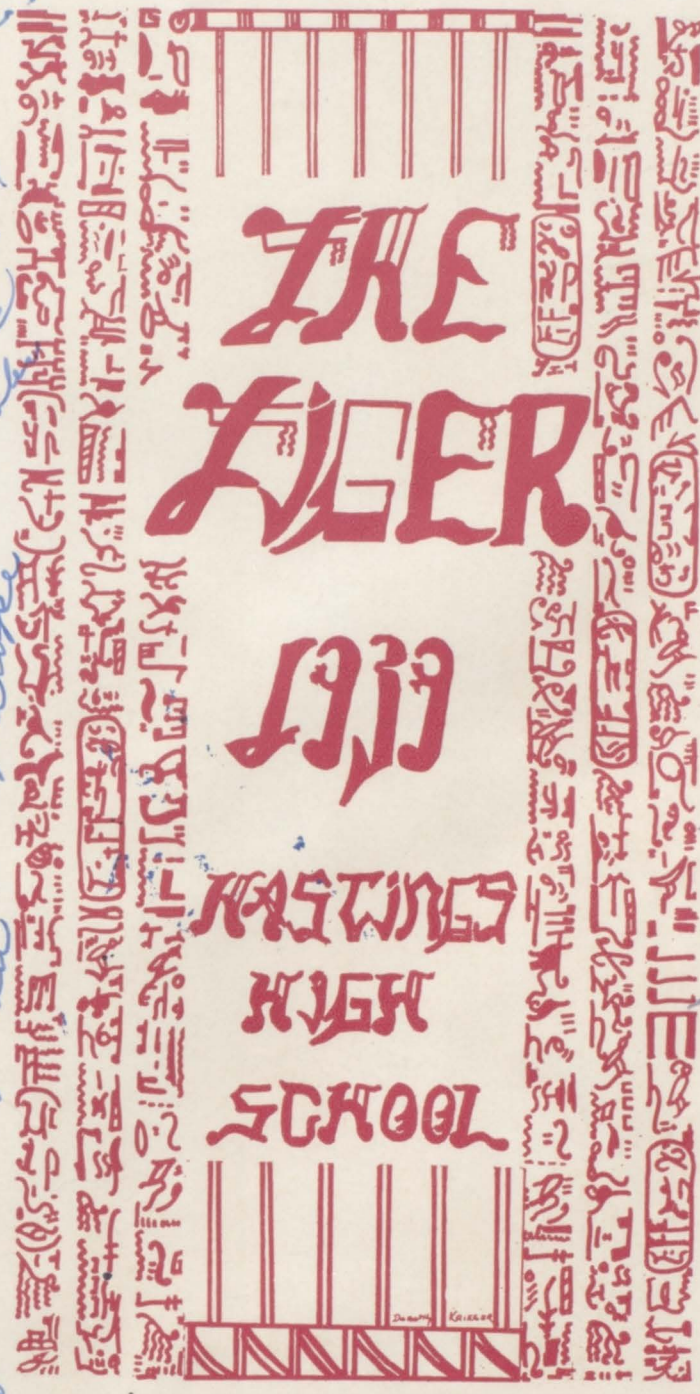 THE
TIGER
1939
HASTINGS
HIGH
SCHOOL
Dorothy KRIEGER